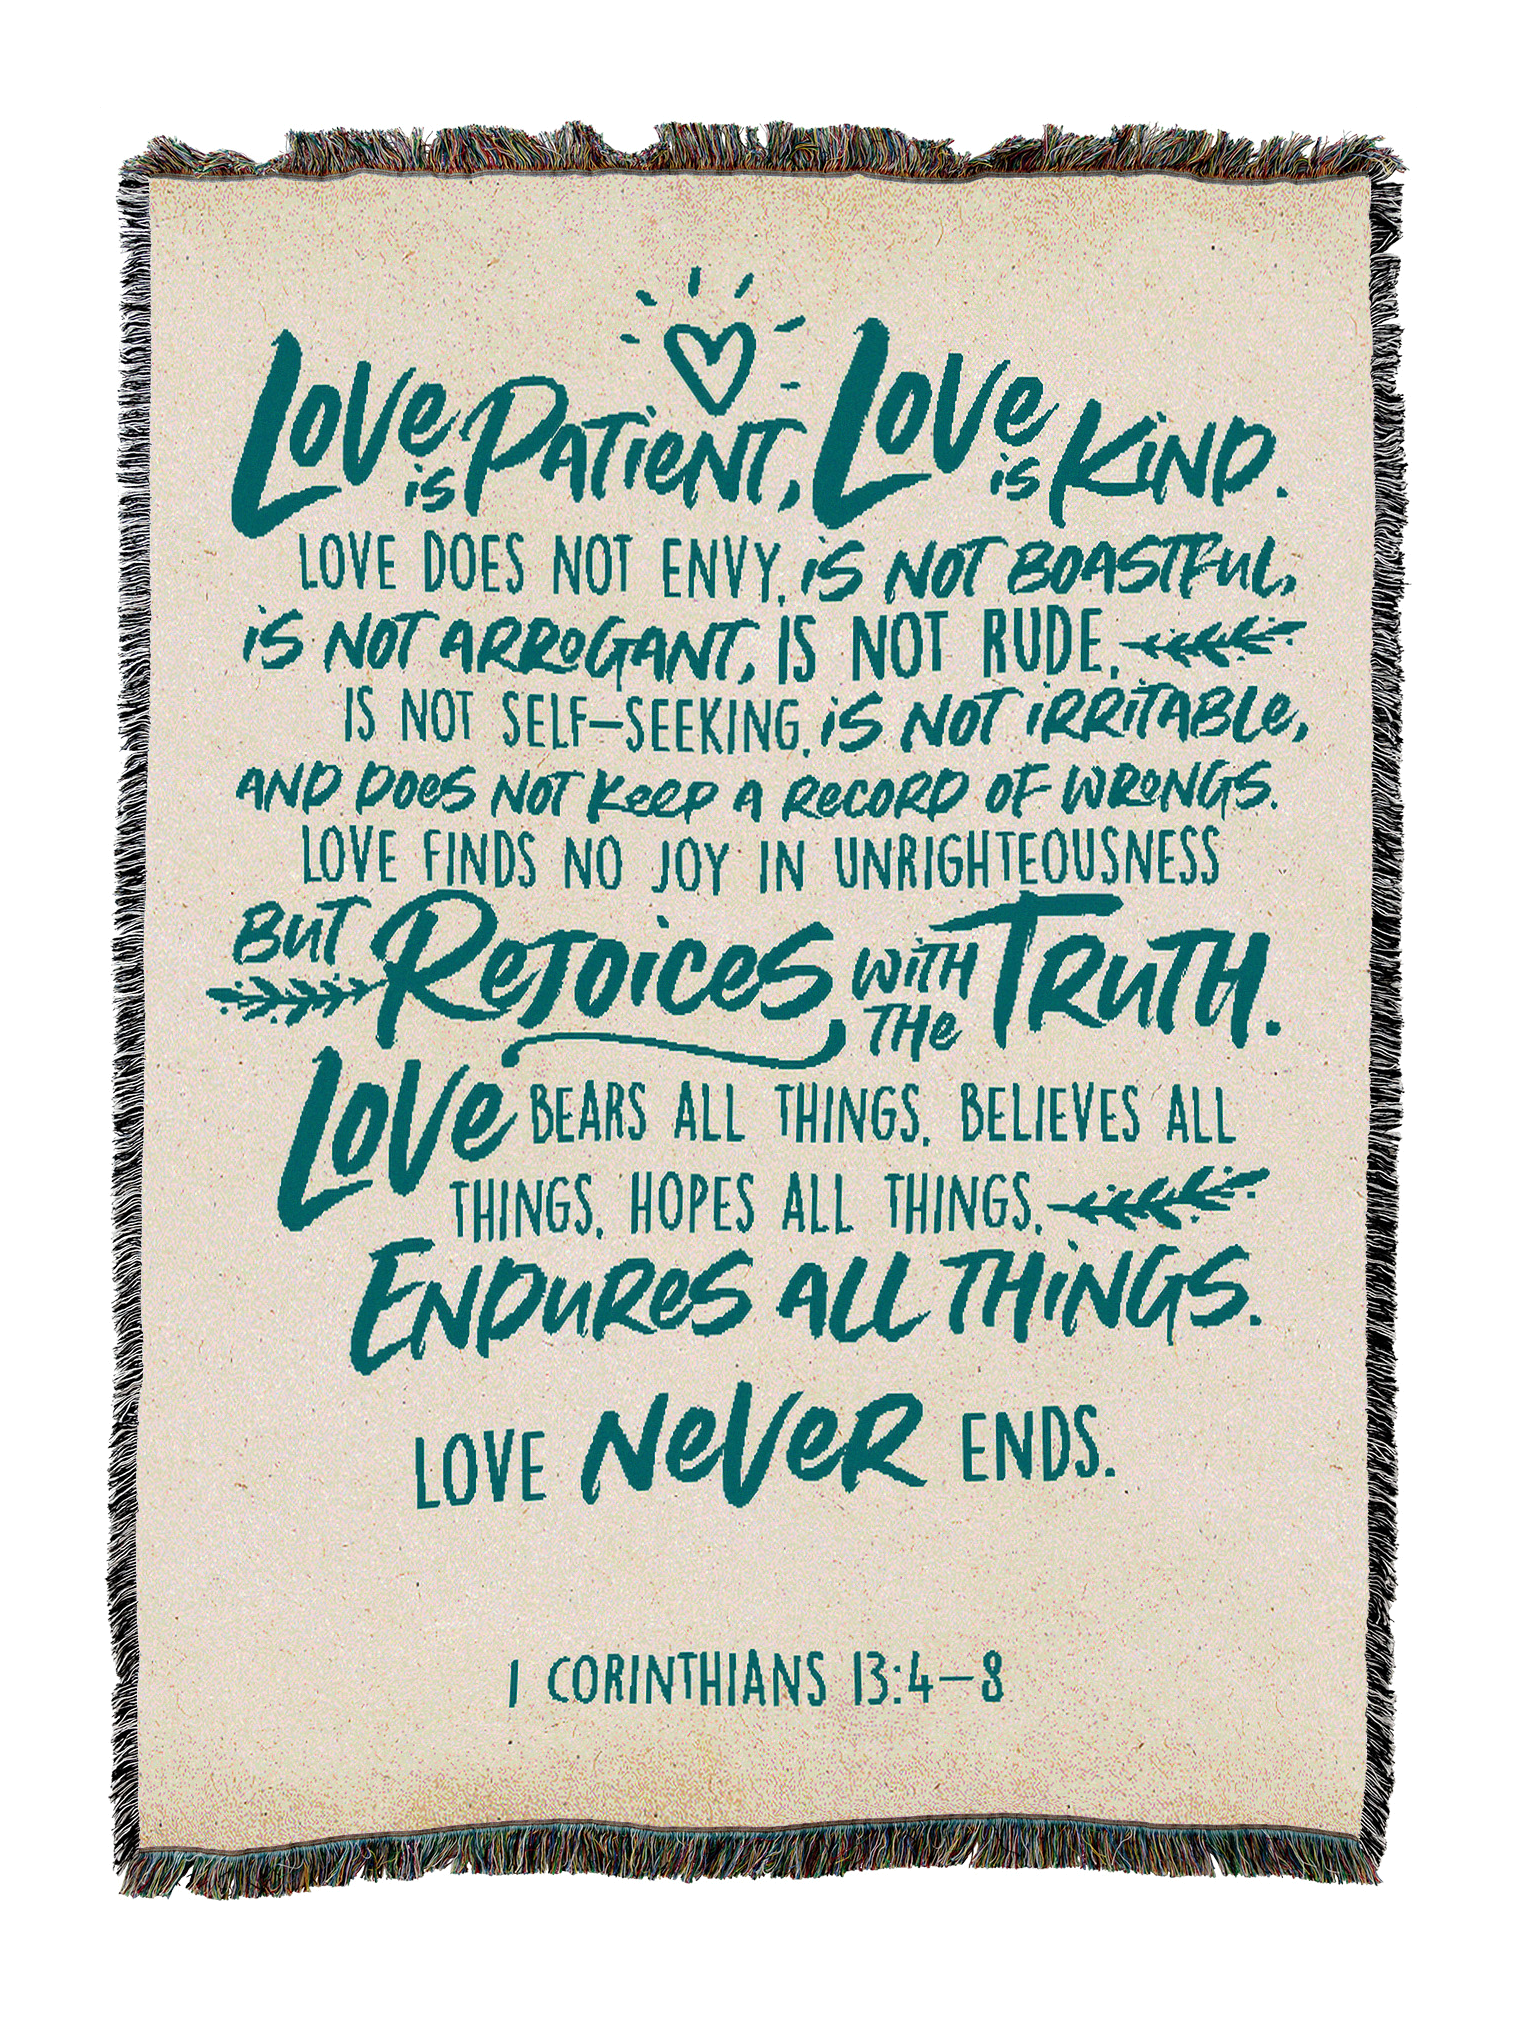 Love is Patient, Love is Kind.
LOVE DOES NOT ENVY, is NOT BOASTFUL,
is NOT ARROGANT, IS NOT RUDE,
IS NOT SELF-SEEKING, is NOT IRRITABLE,
AND DOES NOT KEEP A RECORD OF WRONGS.
LOVE FINDS NO JOY IN UNRIGHTEOUSNESS
BUT REJOICES WITH THE TRUTH.
LOVE BEARS ALL THINGS, BELIEVES ALL
THINGS, HOPES ALL THINGS,
ENDURES ALL THINGS.
LOVE NEVER ENDS.
1 CORINTHIANS 13:4–8